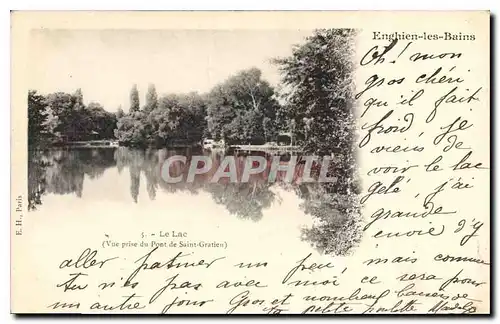 Enghien-les-Bains
Oh! mon
gros chéri
qu'il fait
froid, je
viens de
voir le lac
gelé, j'ai
grande
envie d'y
aller patiner un peu, mais comme
tu n'es pas avec moi ce sera pour
un autre jour Gros et nombreux baisers de
ta petite poulette
CPArama.com
E. H., Paris
5. - Le Lac
(Vue prise du Pont de Saint-Gratien)